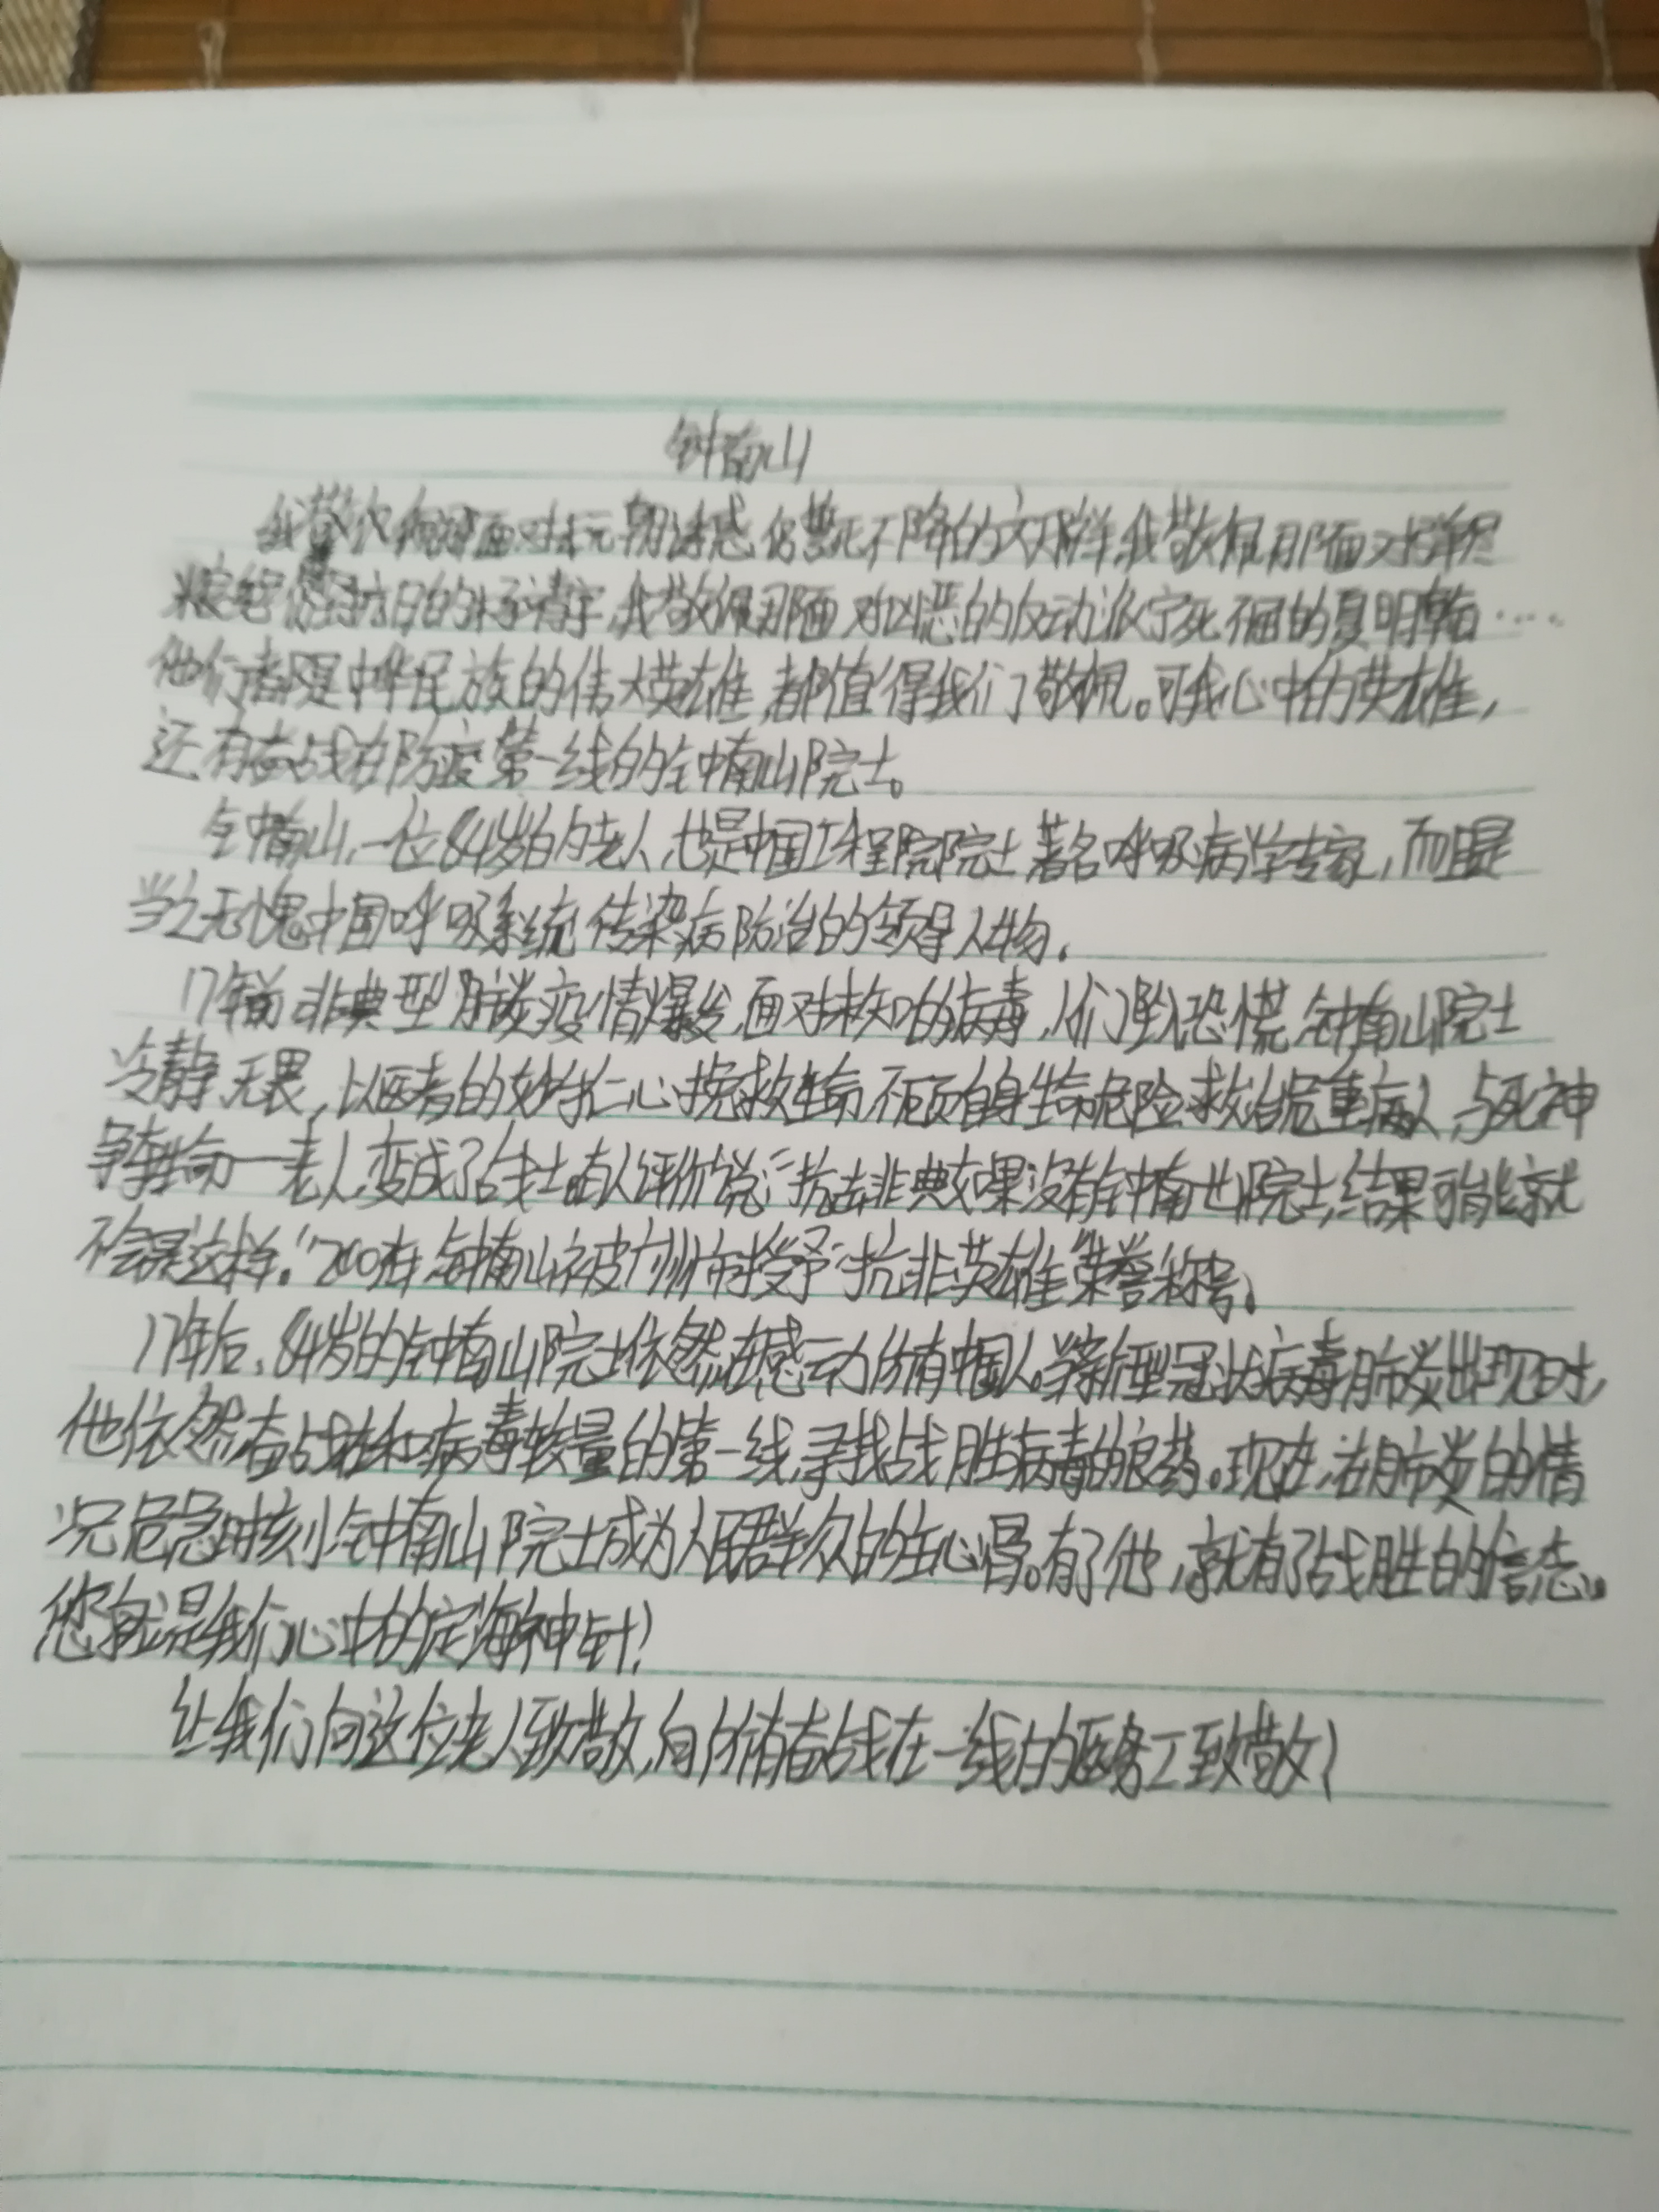 钟南山
我敬佩那面对元朝诱惑,仍誓死不降的文天祥,我敬佩那面对弹尽
粮绝 的杨靖宇,我敬佩那面对凶恶的反动派宁死不屈的夏明翰……
他们都是中华民族的伟大英雄,都值得我们敬佩。可我心中的英雄,
还有奋战在防疫第一线的钟南山院士。
钟南山,一位84岁的老人,也是中国工程院院士,著名呼吸病学专家,而且是
当之无愧中国呼吸系统传染病防治的领导人物。
17年前,非典型肺炎疫情爆发,面对未知的病毒,人们坠入恐慌,钟南山院士
冷静无畏,以医者的妙手仁心挽救生命,不顾自身生命危险救治危重病人,与死神
争夺生命——老人变成了战士。有人评价说:“抗击非典如果没有钟南山院士,结果可能就
不会是这样。” 钟南山被广州市授予“抗非英雄”荣誉称号。
17年后,84岁的钟南山院士依然在感动所有中国人。当新型冠状病毒肺炎出现时,
他依然奋战在和病毒较量的第一线,寻找战胜病毒的良药。现在,在肺炎的情
况危急时刻,钟南山院士成为人民群众的主心骨。有了他,就有了战胜的信念。
您就是我们心中的定海神针!
让我们向这位老人致敬,向所有奋战在一线的医务工致敬!